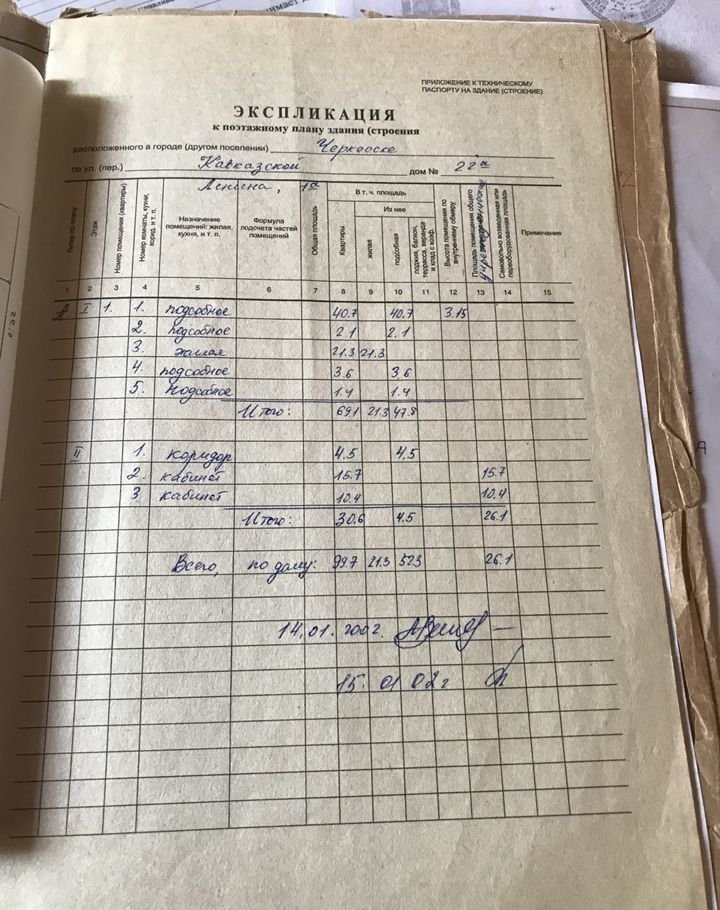 ПРИЛОЖЕНИЕ К ТЕХНИЧЕСКОМУ
ПАСПОРТУ НА ЗДАНИЕ (СТРОЕНИЕ)
ЭКСПЛИКАЦИЯ
к поэтажному плану здания (строения
расположенного а городе (другом поселении) Черкесске
по ул. (пер.) Кавказской дом № 22а
Ленина, 1а
Литер по плану
Этаж
Номер помещения (квартиры)
Номер комнаты, кухни, корид. и т. п.
Назначение помещений: жилая, кухня, и т. п.
Формула подсчета частей помещений
Общая площадь
В т. ч. площадь
Квартиры
Из нее
жилая
подсобная
лоджия, балкон, терраса, веранда и клад с коэф.
Высота помещения по внутреннему обмеру
Площадь помещения общего
Самовольно возведенная или переоборудованная площадь
Примечание
1 2 3 4 5 6 7 8 9 10 11 12 13 14 15
А I 1. 1. подсобное 40.7 40.7 3.15
2. подсобное 2.1 2.1
3. жилая 21.3 21.3
4. подсобное 3.6 3.6
5. подсобное 1.4 1.4
Итого: 69.1 21.3 47.8
II 1. коридор 4.5 4.5
2. кабинет 15.7 15.7
3 кабинет 10.4 10.4
Итого: 30.6 4.5 26.1
Всего, по дому: 99.7 21.3 52.3 26.1
14.01.2002.
15.01 02г